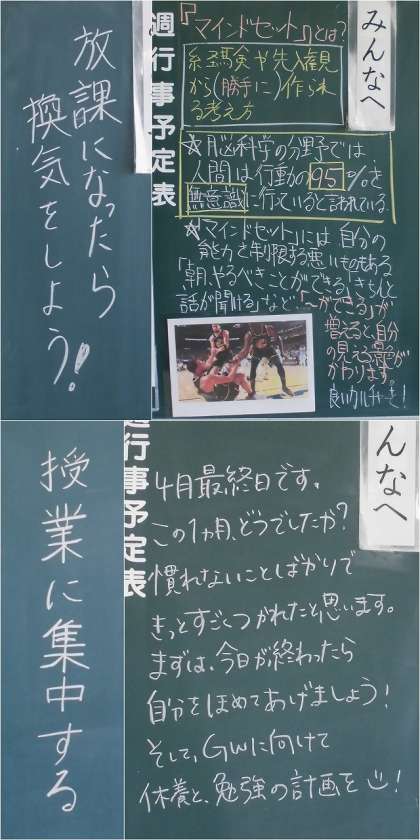 放課になったら
換気をしよう!
週行事予定表
みんなへ
『マインドセット』とは?
経験や先入観
から(勝手に)作られ
る考え方
☆脳科学の分野では
人間は行動の95%を
無意識に行っていると言われている。
☆「マインドセット」には自分の
能力を制限する悪いものもある
「朝、やるべきことができる」「きちんと
話が聞ける」など「〜ができる」が
増えると、自
分の見える景色が
かわります。
良いカルチャーを!
授業に集中する
週行事予定表
んなへ
4月最終日です。
この1ヵ月、どうでしたか?
慣れないことばかりで
きっとすごくつかれたと思います。
まずは、今日が終わったら
自分をほめてあげましょう!
そして、GWに向けて
休養と、勉強の計画を!